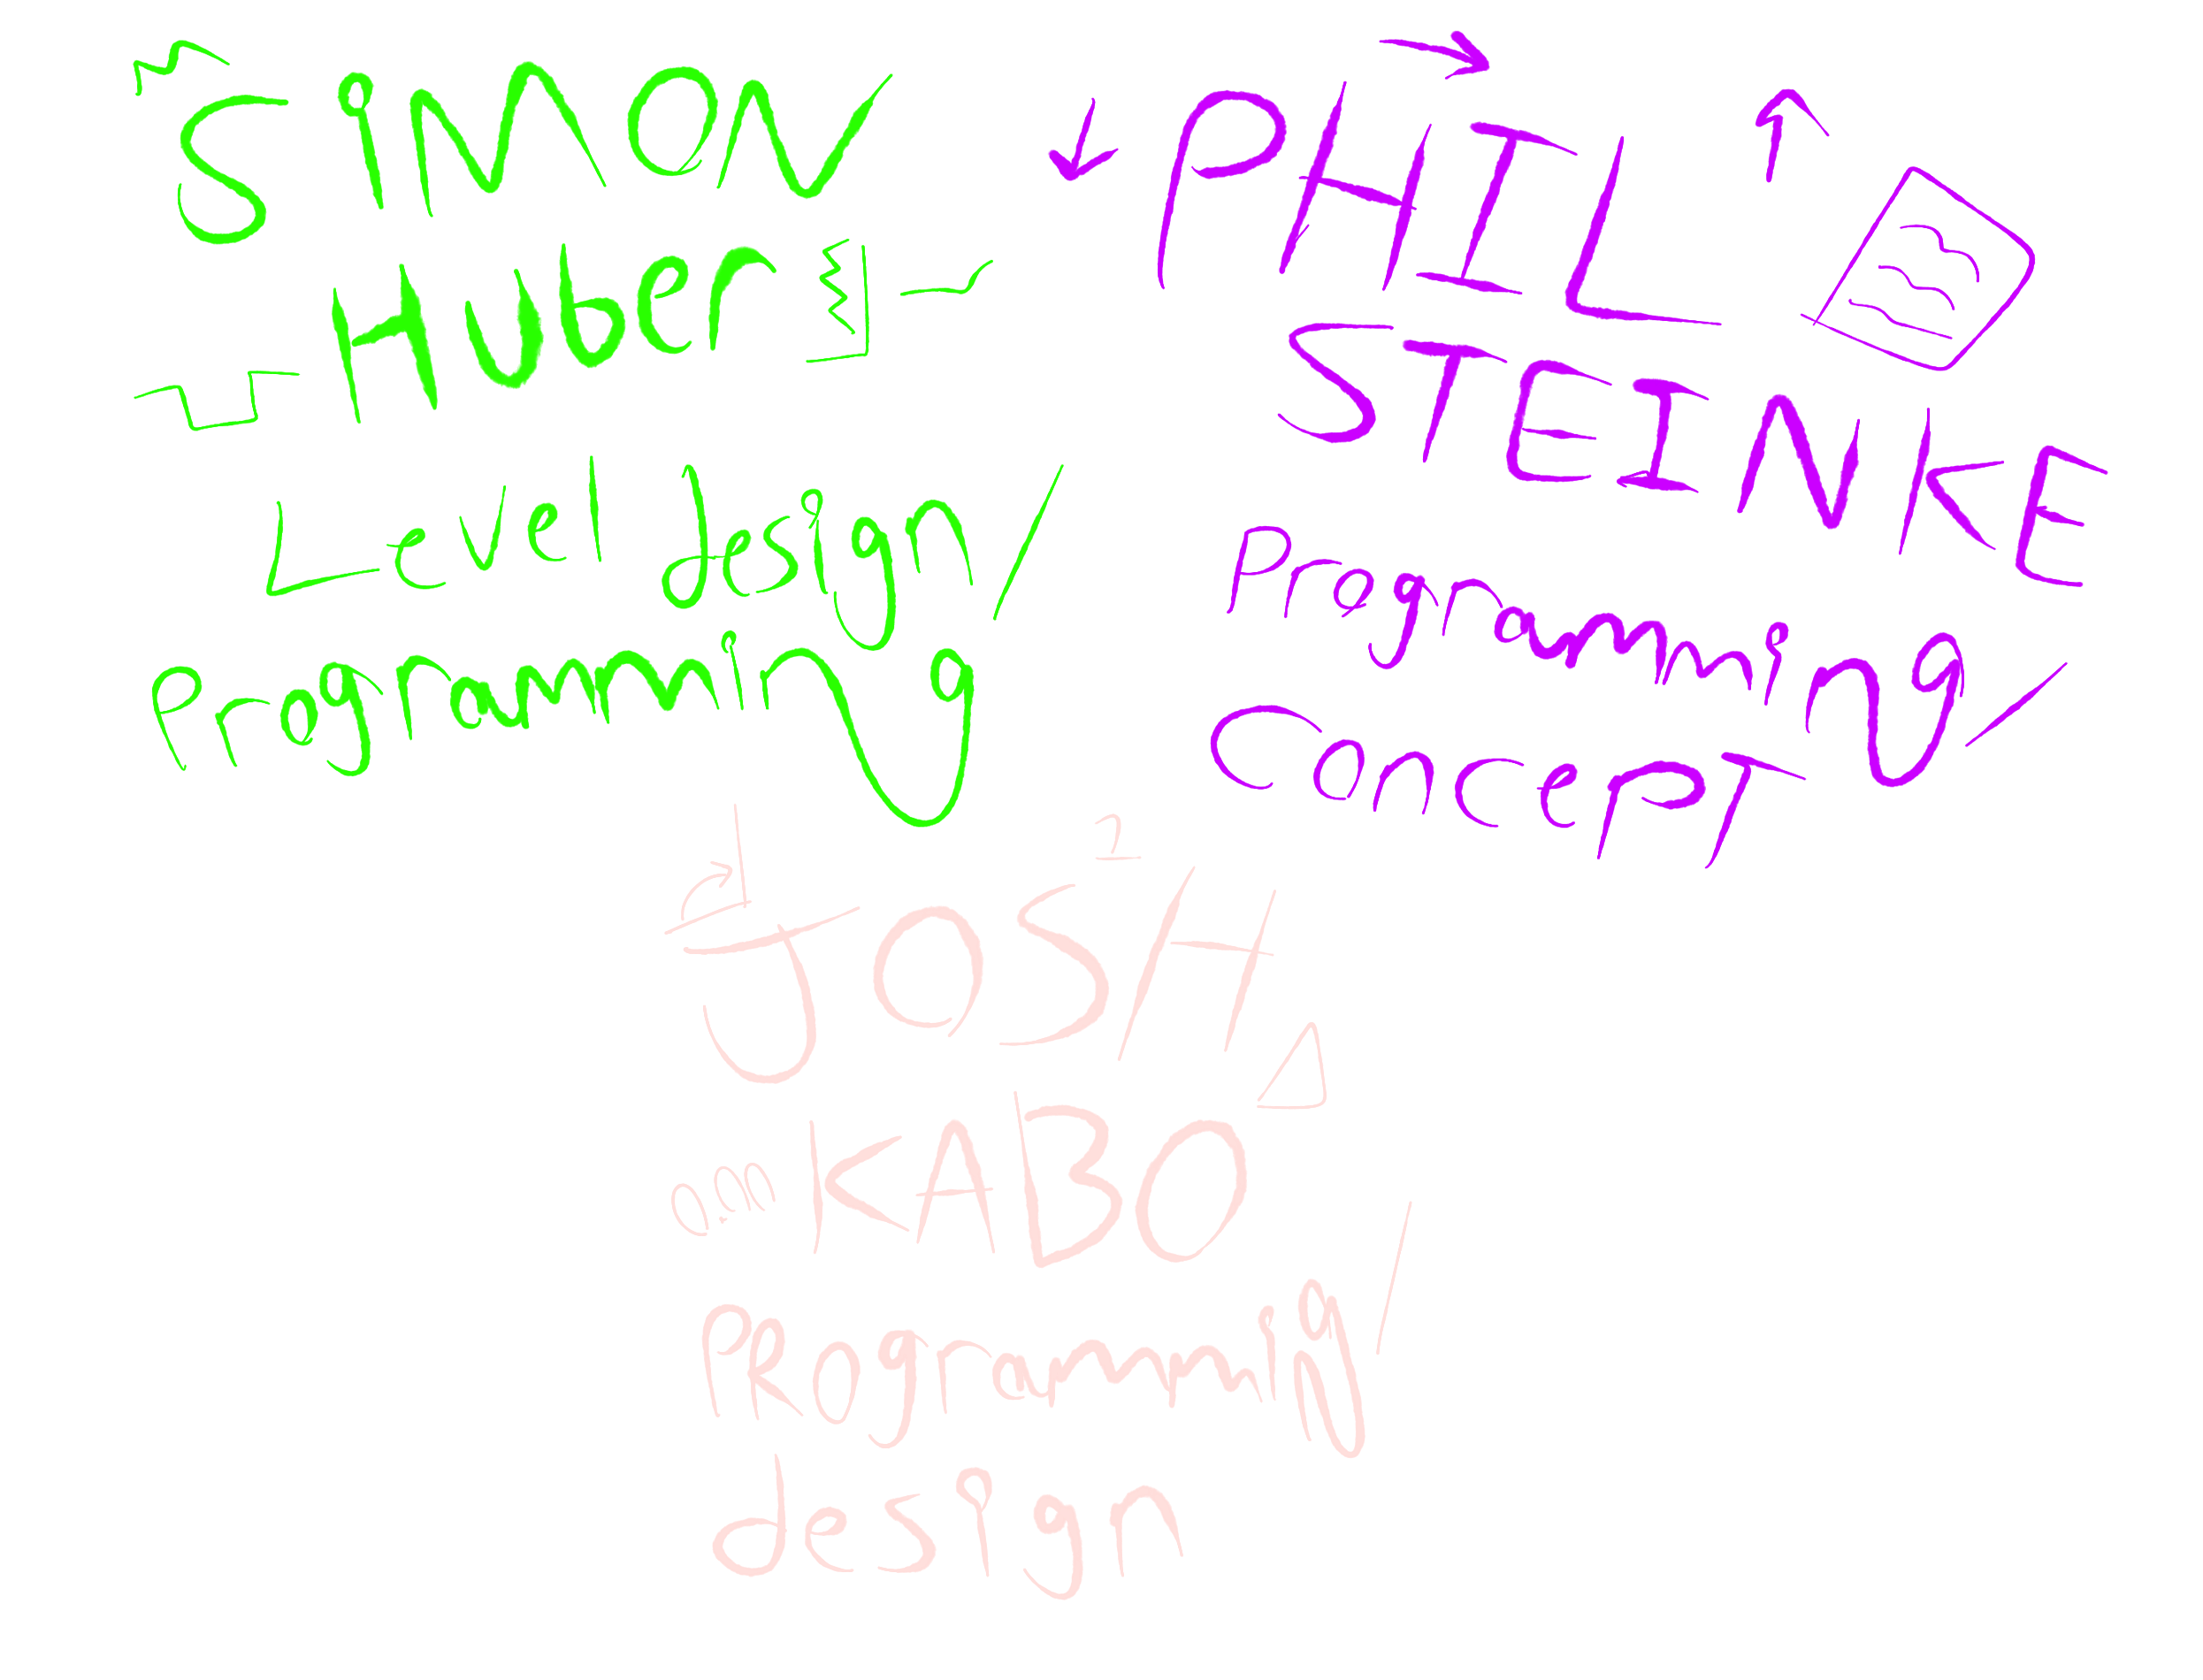 SiMON
Huber
Level design/
Programming
PHIL
STEINKE
Programming/
ConcepT
2
JOSH
KABO
PROgrammig/
design